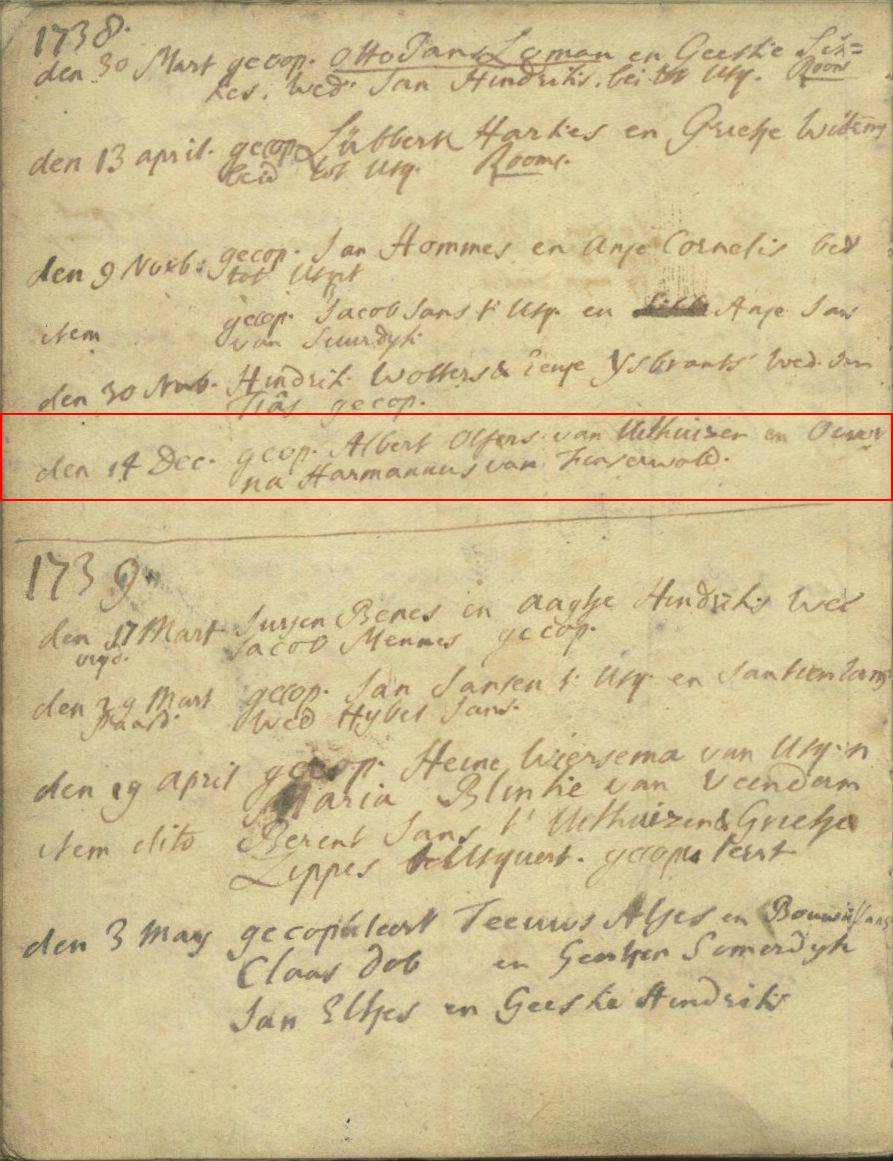 1738.
den 30 Mart gecop. Otto Jans Loman en Geeske
kes. wed. Jan Hindriks. bei tot Usq. Rooms
den 13 april. gecop. Lübbert Harkes en Grietje
beid tot Usq. Rooms.
den 9 Novb. gecop. Jan Hommes en Anje Cornelis beð
tot Usqt
item gecop. Jacob Jans t' Usq. en Anje Jans
van Suurdyk
den 30 Novb. Hindrik Wolters & Eenje Ysbrants wed. Jan
gecop.
den 14 Dec. gecop. Albert Olfers van Uithuizen en Ouwer
na Harmannus van Finserwold.
1739
den 17 Mart Jurjen Benes en aaghe Hindriks Wed
Jacob Mennes gecop.
den 29 Mart gecop. Jan Jansen t' Usq. en
Paasd. Wed Hybel Jans.
den 19 april gecop. Heine Wiersema van Usq. n
Maria Blinkie van Veendam
item dito Berent Jans t' Uithuizen & Grietje
Lippes Usquert. gecopuleert
den 3 May gecopuleert Teeuwes Aljes en
Claas Dob en Geertjen Somerdyk
Jan Eltjes en Geeskie Hindriks